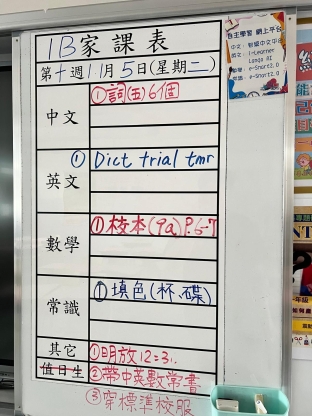 1B家課表
第十週11月5日(星期二)
中文 ①詞(五)6個
英文 ① Dict trial tmr
數學 ①校本(9a)P.6-7
常識 ①填色(杯、碟)
其它 ①明放12:31.
值日生 ②帶中英數常書
③穿標準校服
自主學習 網上平台
i-Learner
e-Smart2.0
e-Smart2.0